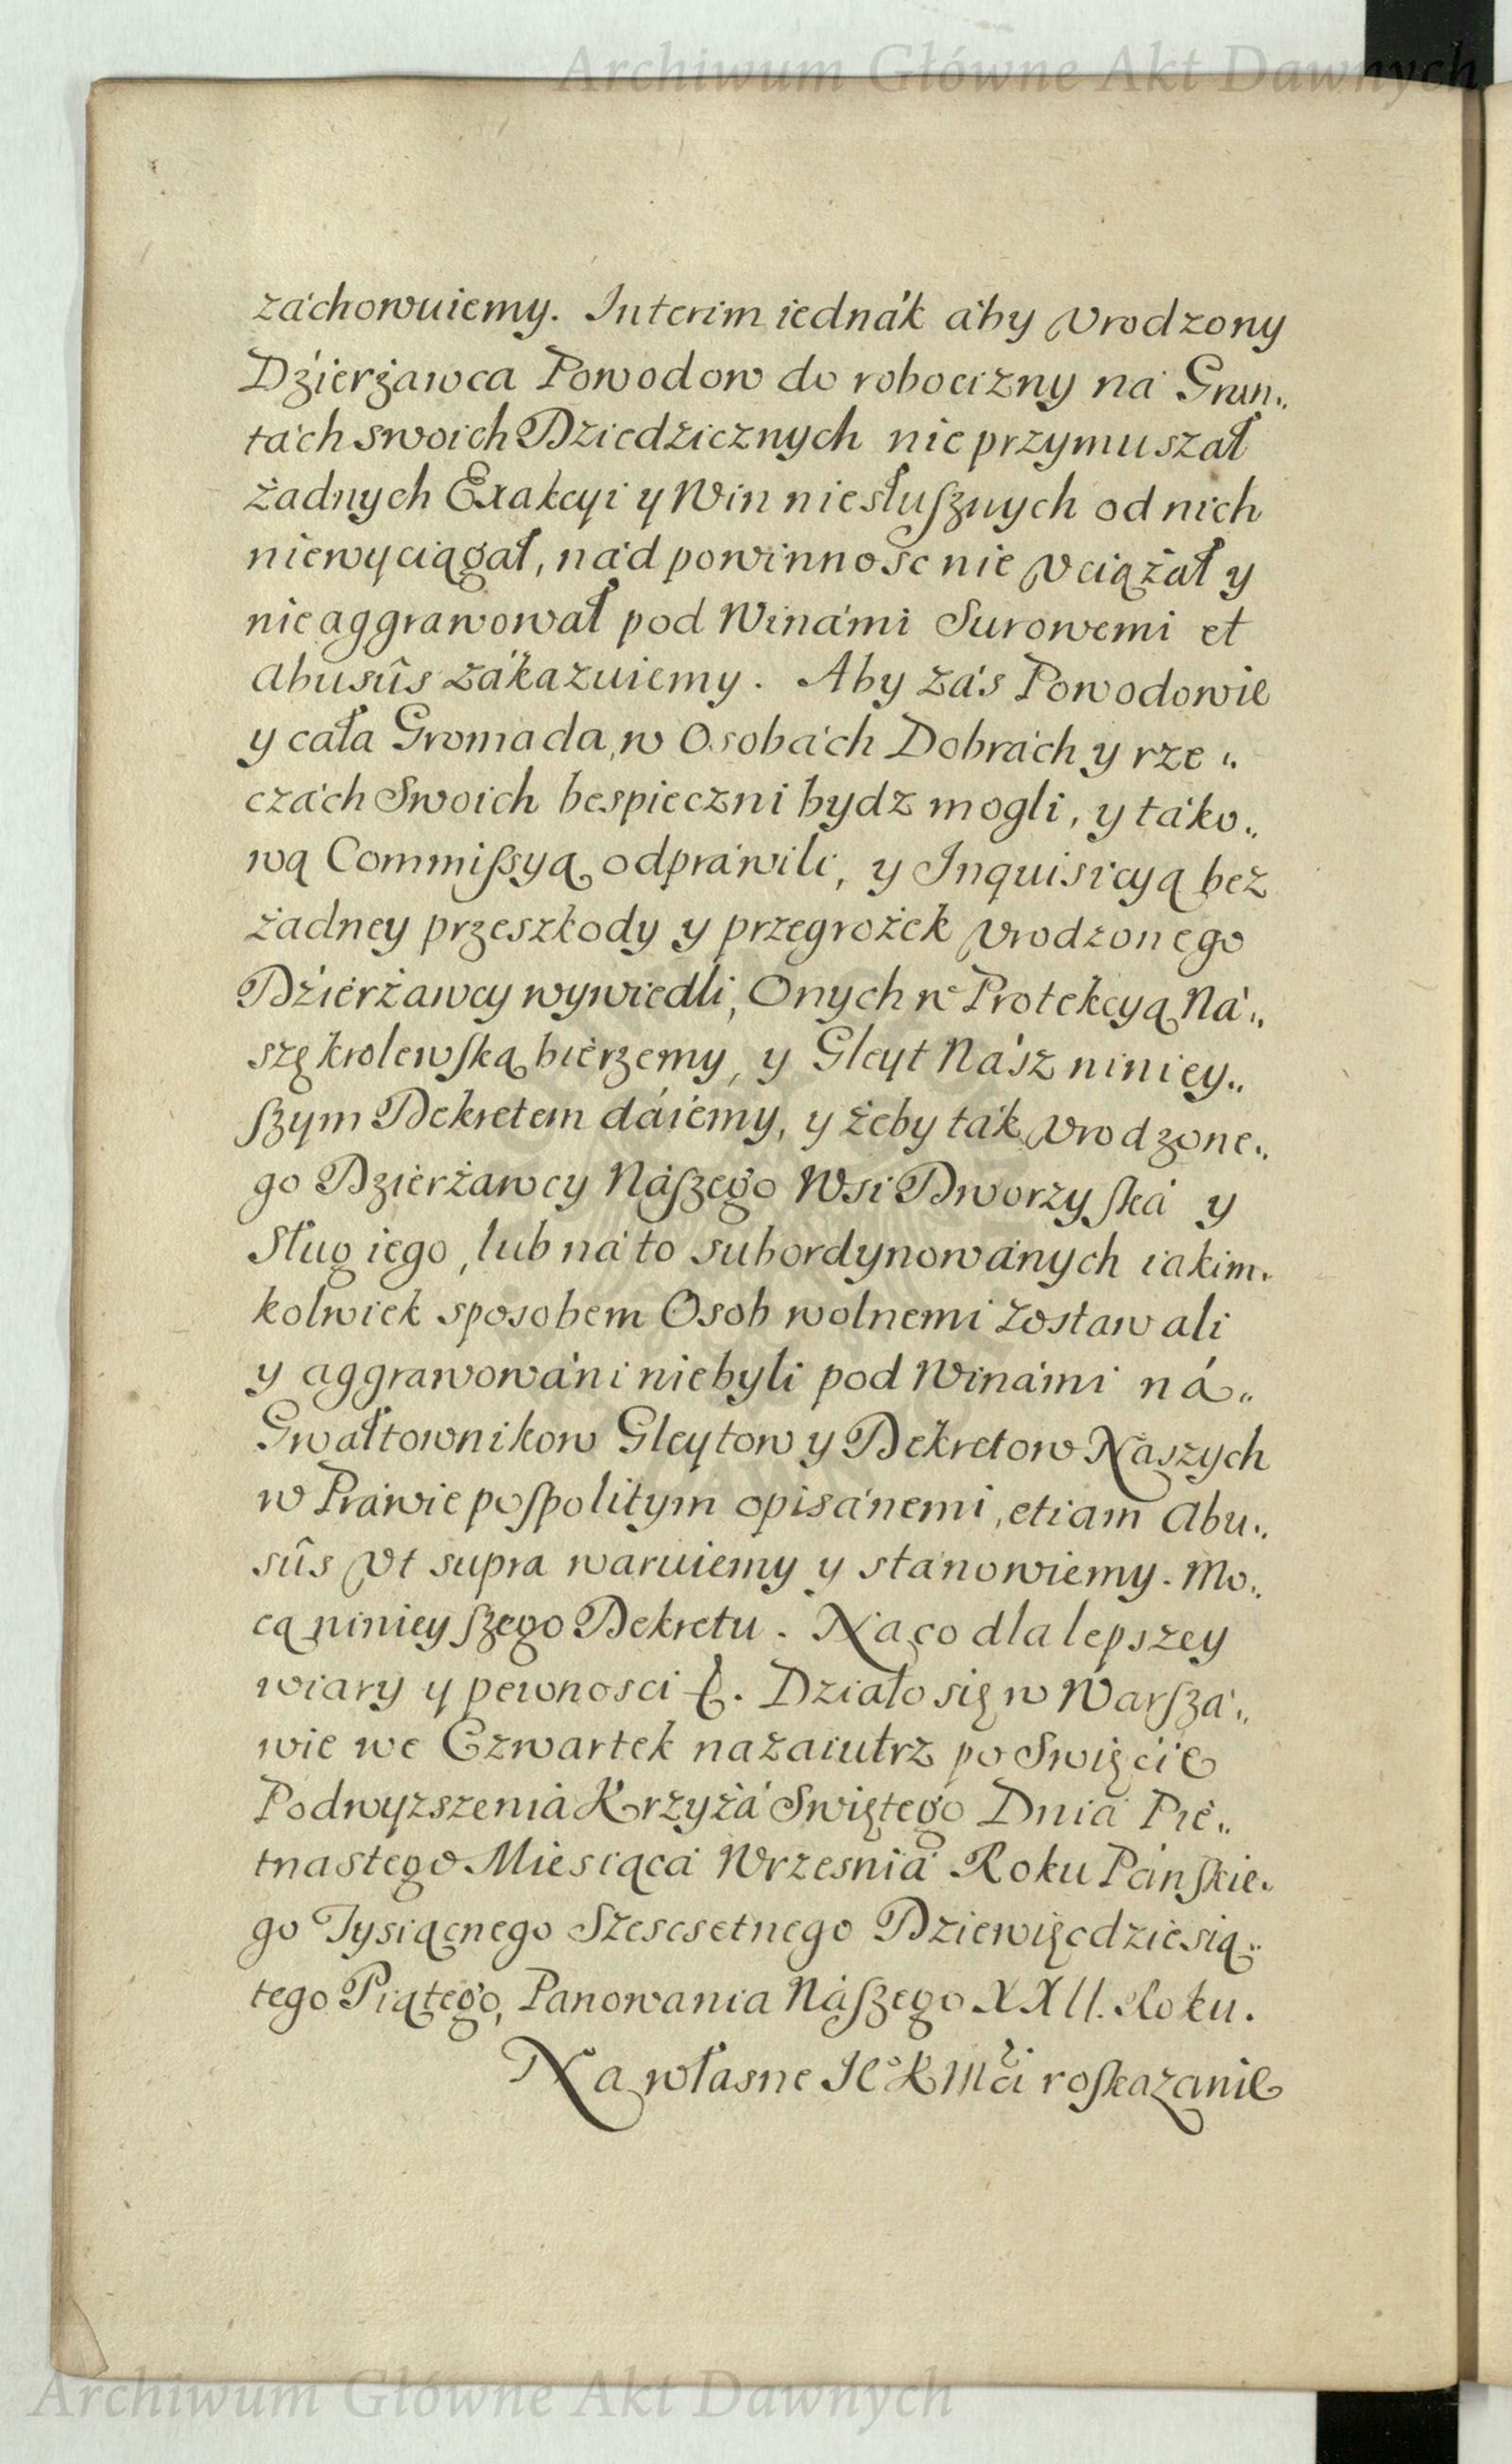 Archiwum Główne Akt Dawnych
záchowuiemy. Interim iednák áby Vrodzony
Dzierżawca Powodow do robocizny ná Grun„
tách swoich Dziedzicznych nie przymuszał
żadnych Exakcyi y Win niesłuſznych od nich
niewyciągał, nád powinnosc nie Vciążał y
nie aggrawował pod Winámi Surowemi et
Abusûs zákazuiemy. Aby zás Powodowie
y cała Gromada, w Osobách Dobrách y rze„
czách Swoich bespieczni bydz mogli, y táko„
wą Commiſsyą odpráwili, y Inquisicyą bez
żadney przeszkody y przegrożek Vrodzonego
Dzierżawcy wywiedli, Onych w Protekcyą Ná„
szę krolewſką bierzemy, y Gleyt Nász niniey„
ſzym Dekretem dáiemy, y żeby ták Vrodzone„
go Dzierżawcy Náſzego Wsi Dworzyſká y
Sług iego, lub ná to subordynowánych iakim„
kolwiek sposobem Osob wolnemi zostawali
y aggrawowáni niebyli pod Winámi ná„
Gwałtownikow Gleytow y Dekretow Naszych
w Práwie poſpolitym opisánemi, etiam Abu„
sûs Vt supra waruiemy y stánowiemy. Mo„
cą ninieyſzego Dekretu. Na co dla lepszey
wiary y pewnosci &. Działo się w Warſzá„
wie we Czwartek nazaiutrz po Swięcie
Podwyzszenia Krzyżá Swiętego Dnia Pię„
tnastego Miesiąca Wrzesnia Roku Pánſkie„
go Tysiącnego Szescsetnego Dziewięcdziesią„
tego Piątego, Panowania Náſzego XXII. Roku.
Na własne Ie° K Mci roſkazanie
Archiwum Główne Akt Dawnych